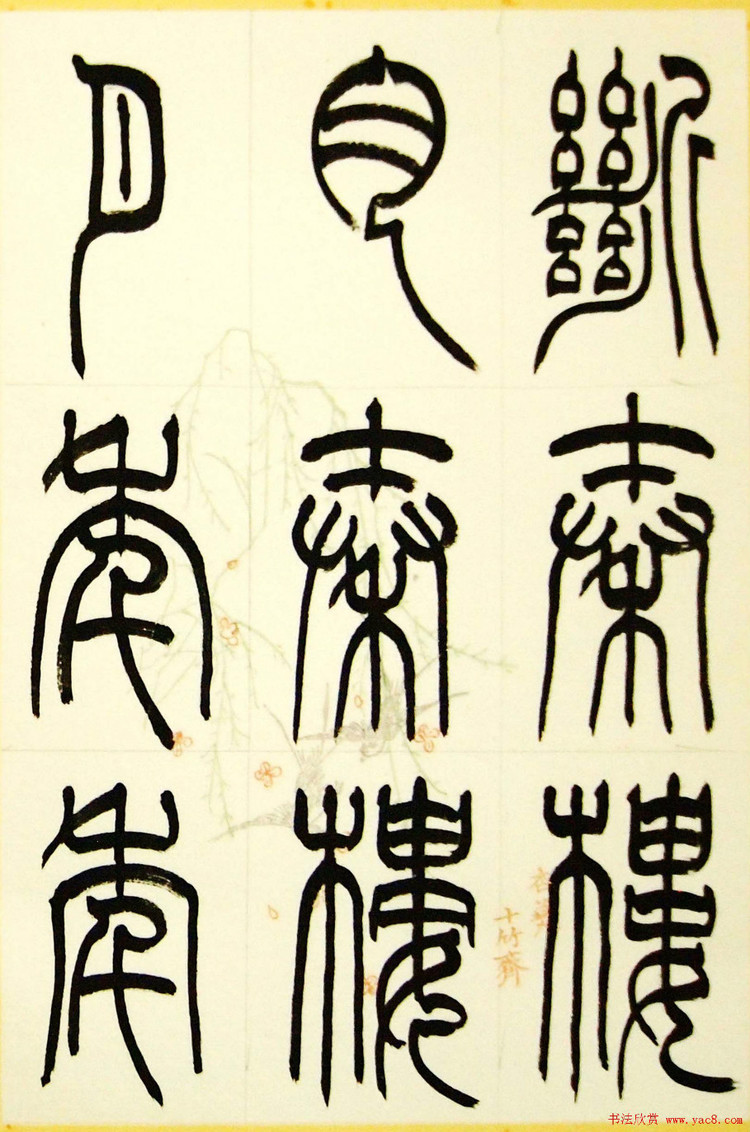 斷秦樓
月秦樓
月年年
十竹齋
书法欣赏 www.yac8.com